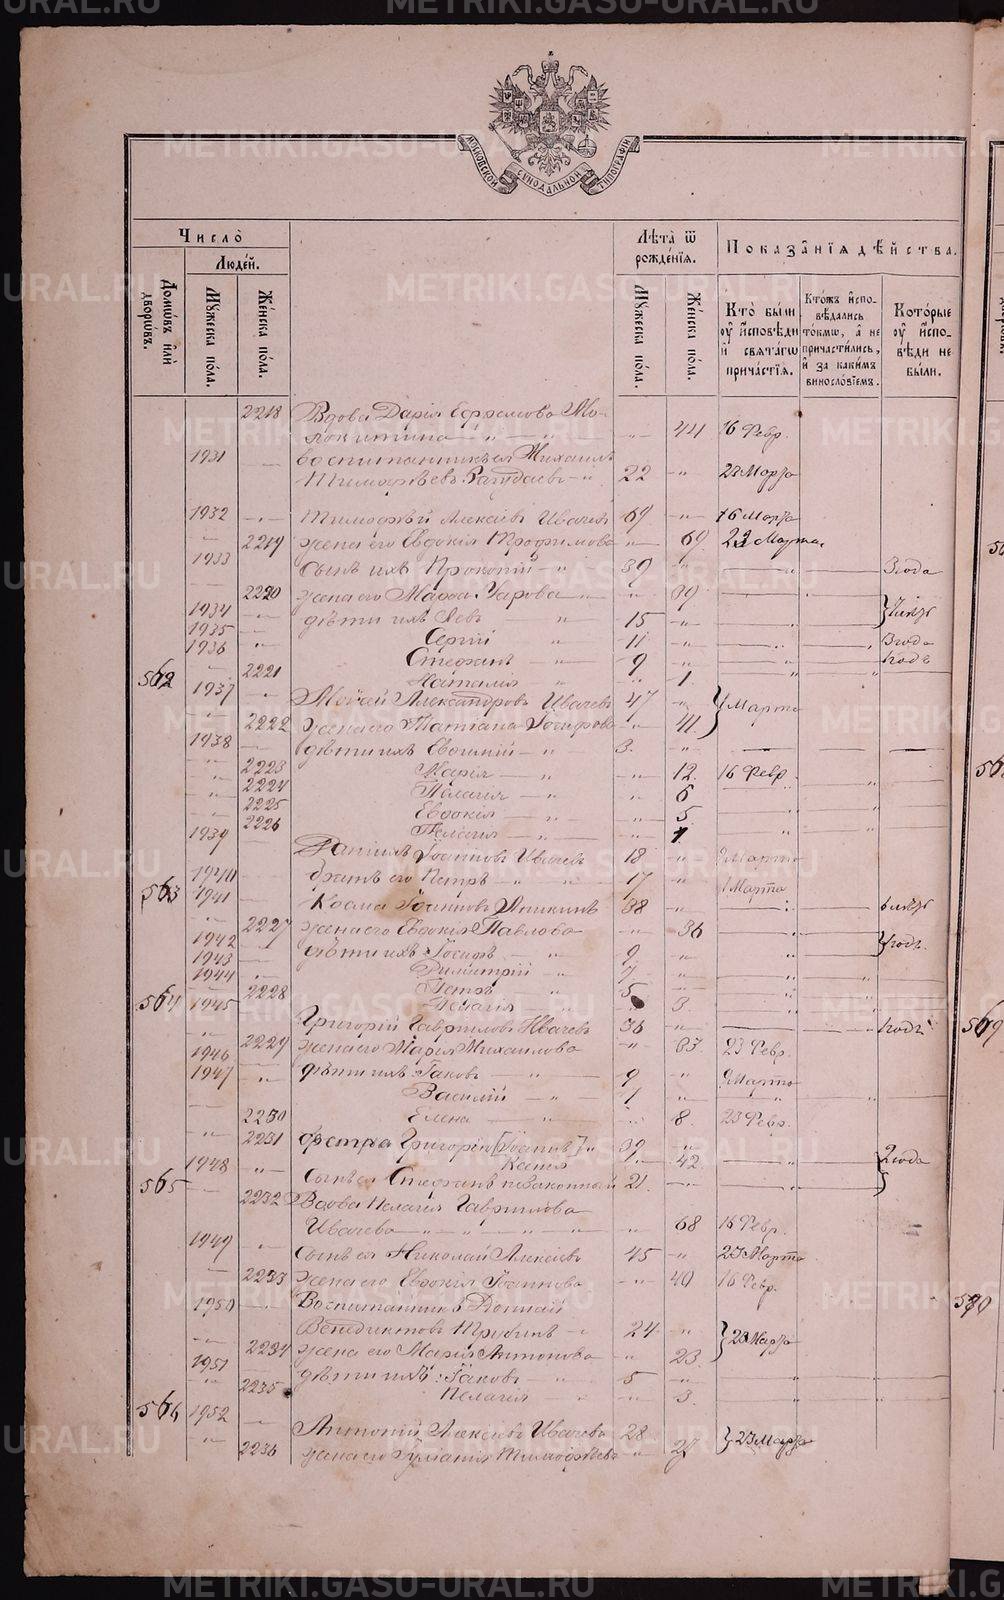 METRIKI.GASO-URAL.RU
МОСКОВСКОЙ СѴНОДАЛЬНОЙ ТИПОГРАФІИ
Число̀
Людей.
Домѡвъ или дворѡвъ.
Мꙋжеска пола.
Женска пола.
Лѣта ѿ рожденїѧ.
Мꙋжеска пола.
Женска пола.
Показанїѧ дѣйства.
Кто были оу исповѣди и свѧтагѡ причастїѧ.
Ктожъ исповѣдались токмѡ, а не причастились, и за какимъ винословїемъ.
Которые оу исповѣди не были.
2218 Вдова Дарія Ефремова Мо-
локитина 44 16 Февр.
1931 воспитанникъ ея Михаилъ
Тимофѣевъ 22 23 Марта
1932 Тимофѣй Алексѣевъ Ивачевъ 69 16 Марта
2219 жена его Евдокія Трофимова 69 23 Марта
1933 Сынъ ихъ Прокопій 39 3 года
2220 жена его Марѳа 39
1934 дѣти ихъ Левъ 15
1935 Сергій 11 3 года
1936 Стефанъ 9 1 годъ
2221 Наталія 1
562 1937 Александровъ Ивачевъ 47 1 Марта
2222 жена его Татіана 41
1938 дѣти ихъ 3
2223 Марія 12 16 Февр.
2224 Пелагія 6
2225 Евдокія 5
2226 Пелагія 1
1939 Іоанновъ Ивачевъ 18 9 Марта
1940 братъ его Петръ 17 1 Марта
563 1941 Косма Іоанновъ 38
2227 жена его Евдокія Павлова 36 1 годъ
1942 дѣти ихъ Іосифъ 9
1943 Димитрій 7
1944 Петръ 5
2228 Пелагія 3
564 1945 Григорій Гавриловъ Ивачевъ 36 1 годъ
2229 жена его Марія Михаилова 33 23 Февр.
1946 дѣти ихъ Іаковъ 9 9 Марта
1947 Василій 1
2230 Елена 8 23 Февр.
2231 сестра Григорію [Іоаннъ] 39
Ксенія 42 2 года
1948 Сынъ ея Стефанъ незаконный 21
565 2232 Вдова Пелагія Гаврилова
Ивачева 68 16 Февр.
1949 Сынъ ея Николай Алексѣевъ 45 23 Марта
2233 жена его Евдокія Іоаннова 40 16 Февр.
1950 Воспитанникъ
Венедиктовъ 24 23 Марта
2234 жена его Марія Антонова 23
1951 дѣти ихъ: Іаковъ 5
2235 Пелагія 3
566 1952 Антоній Алексѣевъ Ивачевъ 28 23 Марта
2236 жена его Іуліанія Тимофѣева 27
569
570